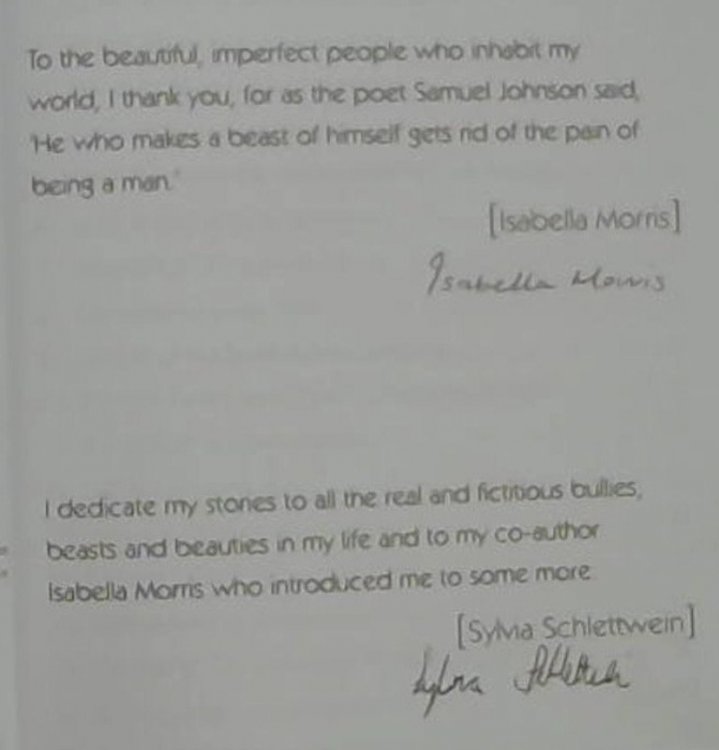 To the beautiful, imperfect people who inhabit my
world, I thank you, for as the poet Samuel Johnson said,
'He who makes a beast of himself gets rid of the pain of
being a man.'
[Isabella Morris]
Isabella Morris
I dedicate my stories to all the real and fictitious bullies,
beasts and beauties in my life and to my co-author
Isabella Morris who introduced me to some more
[Sylvia Schlettwein]
Sylvia Schlettwein